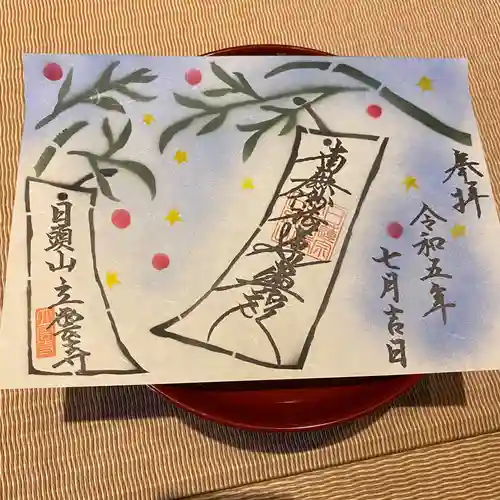 奉拝
令和五年
七月吉日
南無妙法蓮華経
日頭山立雲寺